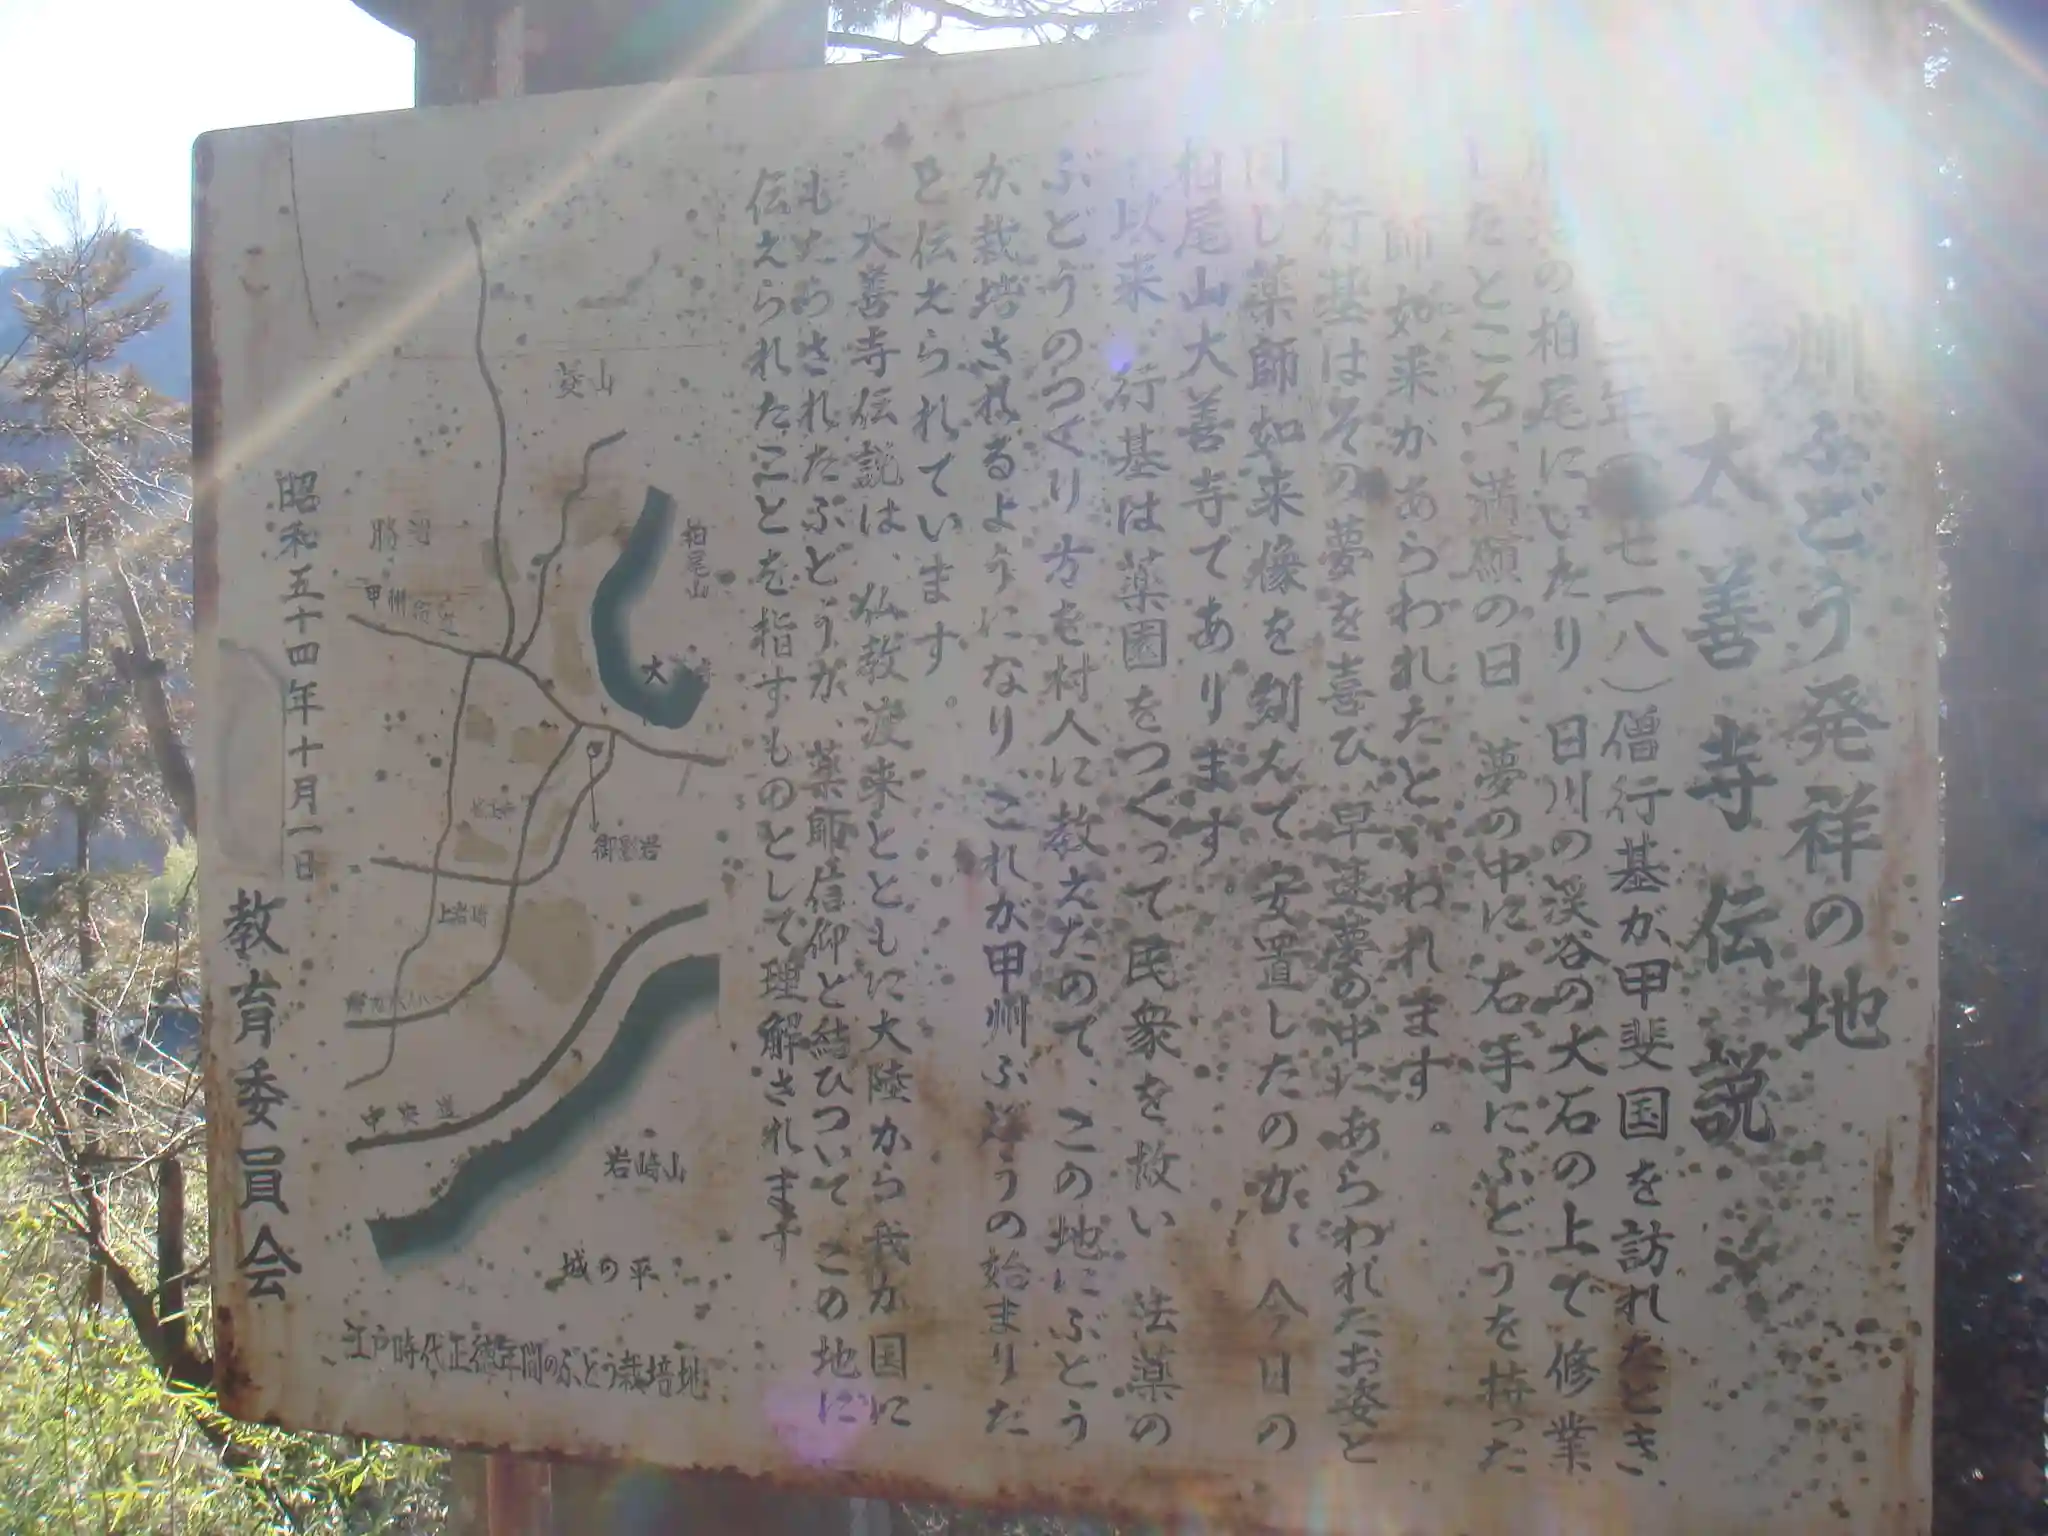 州ぶどう発祥の地
大善寺伝説
年（七一八）僧行基が甲斐国を訪れたとき、
の柏尾にいたり、日川の渓谷の大石の上で修業
したところ、満願の日、夢の中に右手にぶどうを持った
師如来があらわれたといわれます。
行基はその夢を喜び、早速夢の中にあらわれたお姿と
同じ薬師如来像を刻んで安置したのが、今日の
柏尾山大善寺であります。
以来、行基は薬園をつくって民衆を救い、法薬の
ぶどうのつくり方を村人に教えたので、この地にぶどう
が栽培されるようになり、これが甲州ぶどうの始まりだ
と伝えられています。
大善寺伝説は、仏教渡来とともに大陸から我が国に
もたらされたぶどうが、薬師信仰と結びついてこの地に
伝えられたことを指すものとして理解されます
菱山
柏尾山
勝沼
甲州街道
大寺
御影岩
上岩崎
中央道
岩崎山
城の平
江戸時代正徳年間のぶどう栽培地
昭和五十四年十月一日
教育委員会